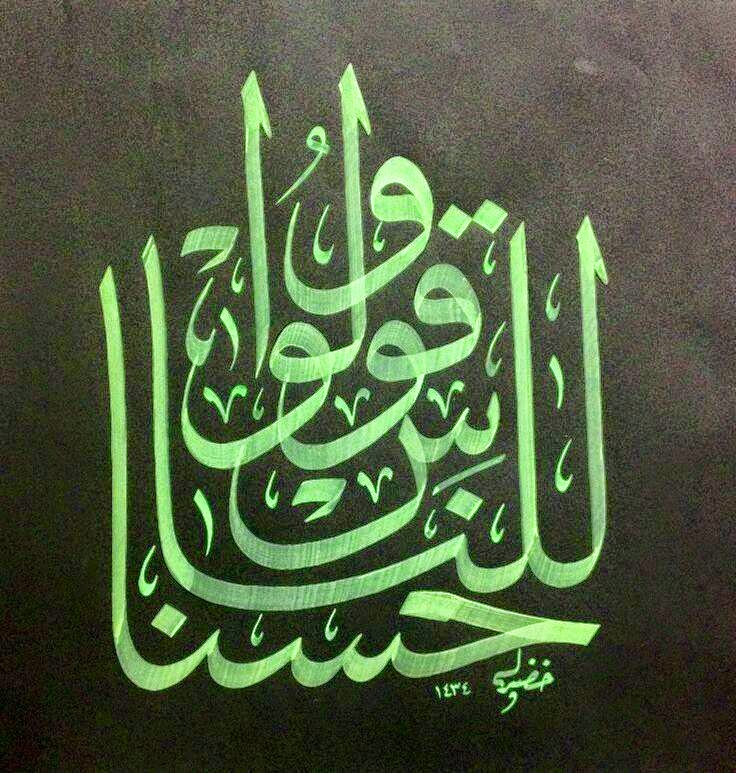 وقولوا
للناس
حسنا
خضير
١٤٣٤